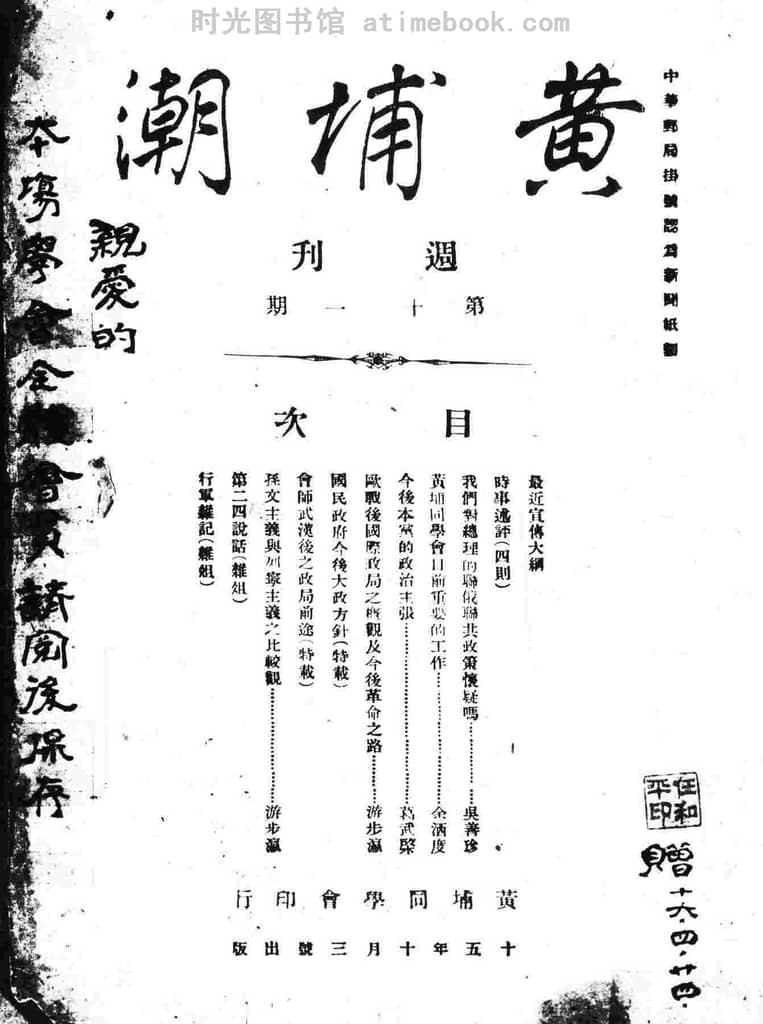 时光图书馆 atimebook.com
中華郵局掛號認爲新聞紙類
黃埔潮
週刊
第十一期
目次
最近宣傳大綱
時事述評(四則)
我們對總理的聯俄聯共政策懷疑嗎⋯⋯⋯吳善珍
黃埔同學會目前重要的工作⋯⋯⋯余洒度
今後本黨的政治主張⋯⋯⋯葛武棨
歐戰後國際政局之概觀及今後革命之路⋯⋯⋯游步瀛
國民政府今後大政方針(特載)
會師武漢後之政局前途(特載)
孫文主義與列寧主義之比較觀⋯⋯⋯游步瀛
第二四說話(雜俎)
行軍雜記(雜俎)
黃埔同學會印行
十五年十月三號出版
親愛的
本場學會全體會員請閱後保存
任和平印
贈 十六.四.廿四.